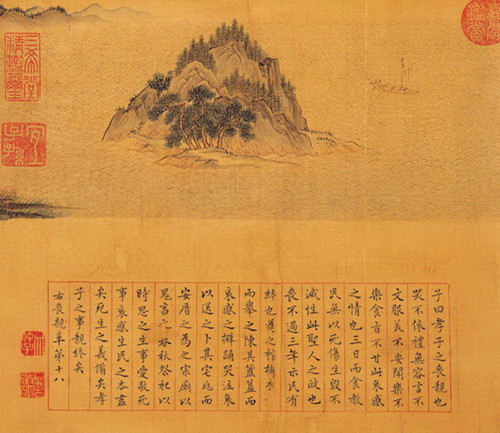 子曰孝子之喪親也
哭不偯禮無容言不
文服美不安聞樂不
樂食旨不甘此哀慼
之情也三日而食教
民無以死傷生毀不
滅性此聖人之政也
喪不過三年示民有
終也為之棺槨衣
而舉之陳其簠簋而
哀慼之擗踊哭泣哀
以送之卜其宅兆而
安厝之為之宗廟以
鬼享之春秋祭祀以
時思之生事愛敬死
事哀慼生民之本盡
矣死生之義備矣孝
子之事親終矣
右喪親章第十八
三希堂精鑑璽
宜子孫